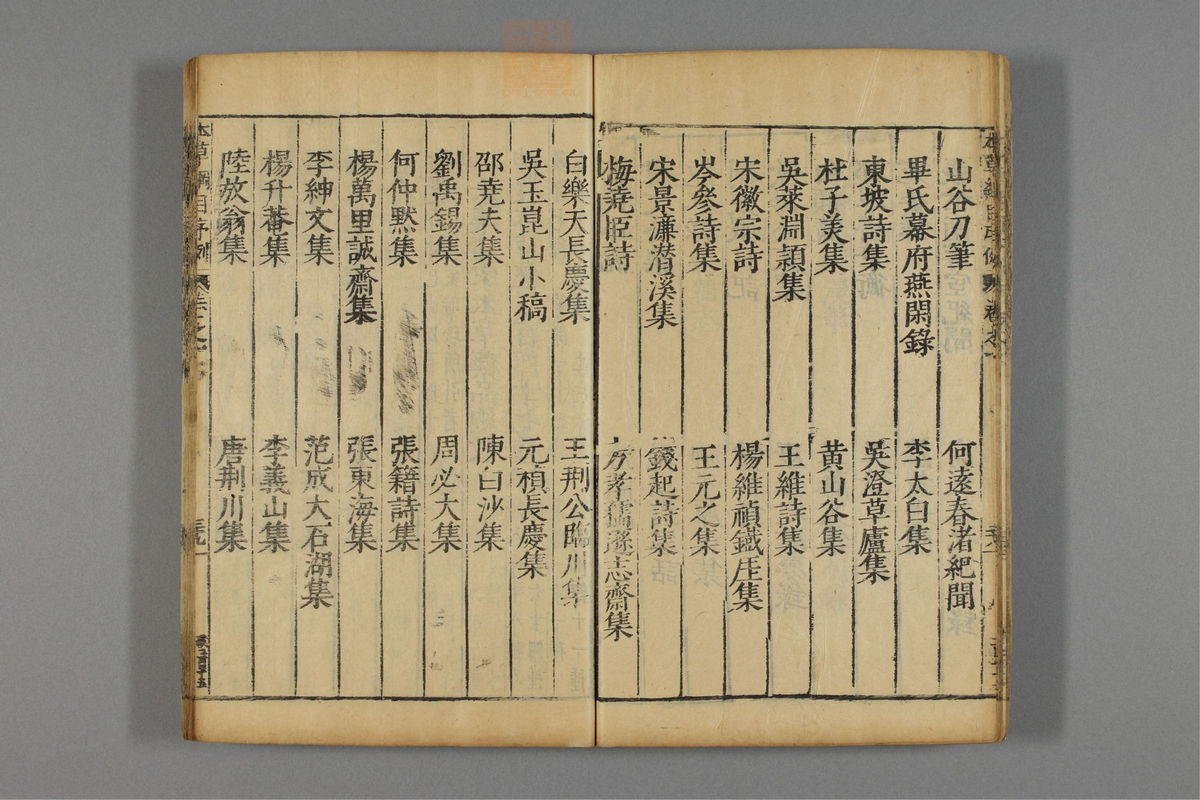 山谷刀筆
何遠春渚紀聞
畢氏幕府燕閑錄
李太白集
東坡詩集
吳澄草廬集
杜子美集
黄山谷集
吳萊淵頴集
王維詩集
宋徽宗詩
楊維禎鐵厓集
岑參詩集
王元之集
宋景濂潛溪集
錢起詩集
梅堯臣詩
方孝孺遜志齋集
白樂天長慶集
王荆公臨川集
吳玉崑山小稿
元稹長慶集
邵堯夫集
陳白沙集
劉禹錫集
周必大集
何仲默集
張籍詩集
楊萬里誠齋集
張東海集
李紳文集
范成大石湖集
楊升菴集
李義山集
陸放翁集
唐荆川集
本草綱目序例